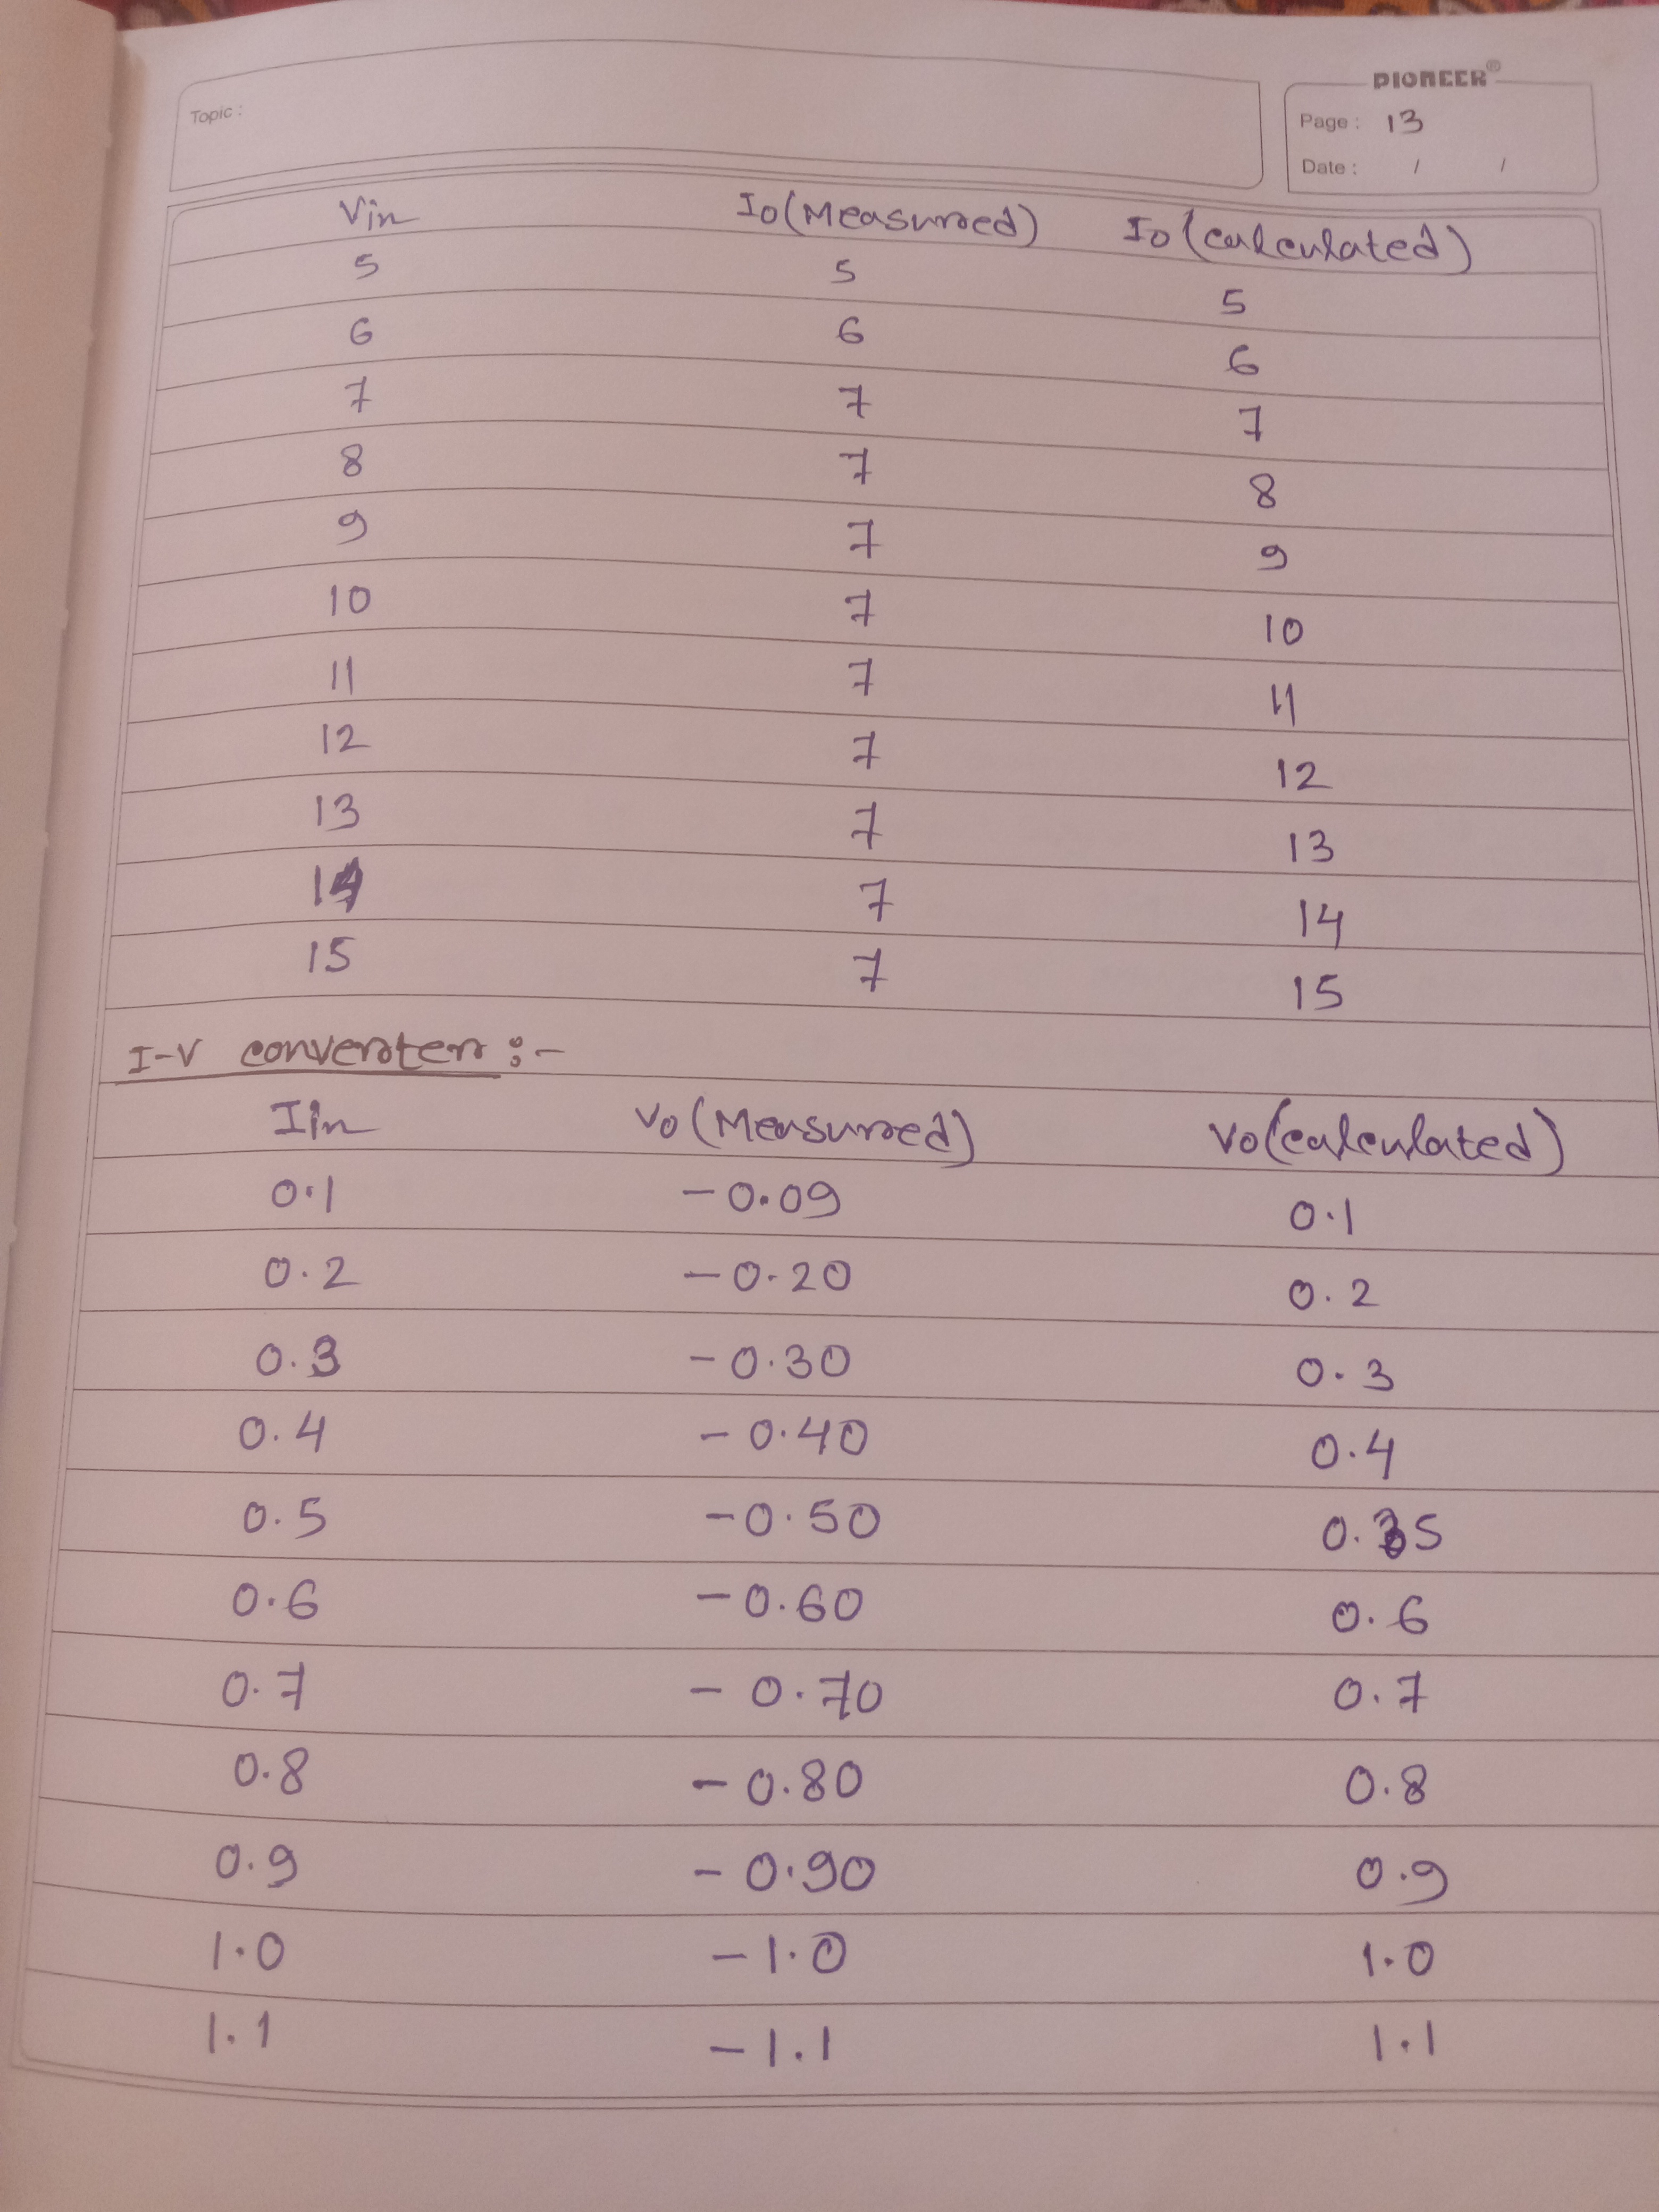 PIONEER®
Topic :
Page : 13
Date : / /
Vin Io(Measured) Io(calculated)
5 5 5
6 6 6
7 7 7
8 7 8
9 7 9
10 7 10
11 7 11
12 7 12
13 7 13
14 7 14
15 7 15
I-V converter :-
Iin Vo(Measured) Vo(calculated)
0.1 -0.09 0.1
0.2 -0.20 0.2
0.3 -0.30 0.3
0.4 -0.40 0.4
0.5 -0.50
0.6 -0.60 0.6
0.7 -0.70 0.7
0.8 -0.80 0.8
0.9 -0.90 0.9
1.0 -1.0 1.0
1.1 -1.1 1.1